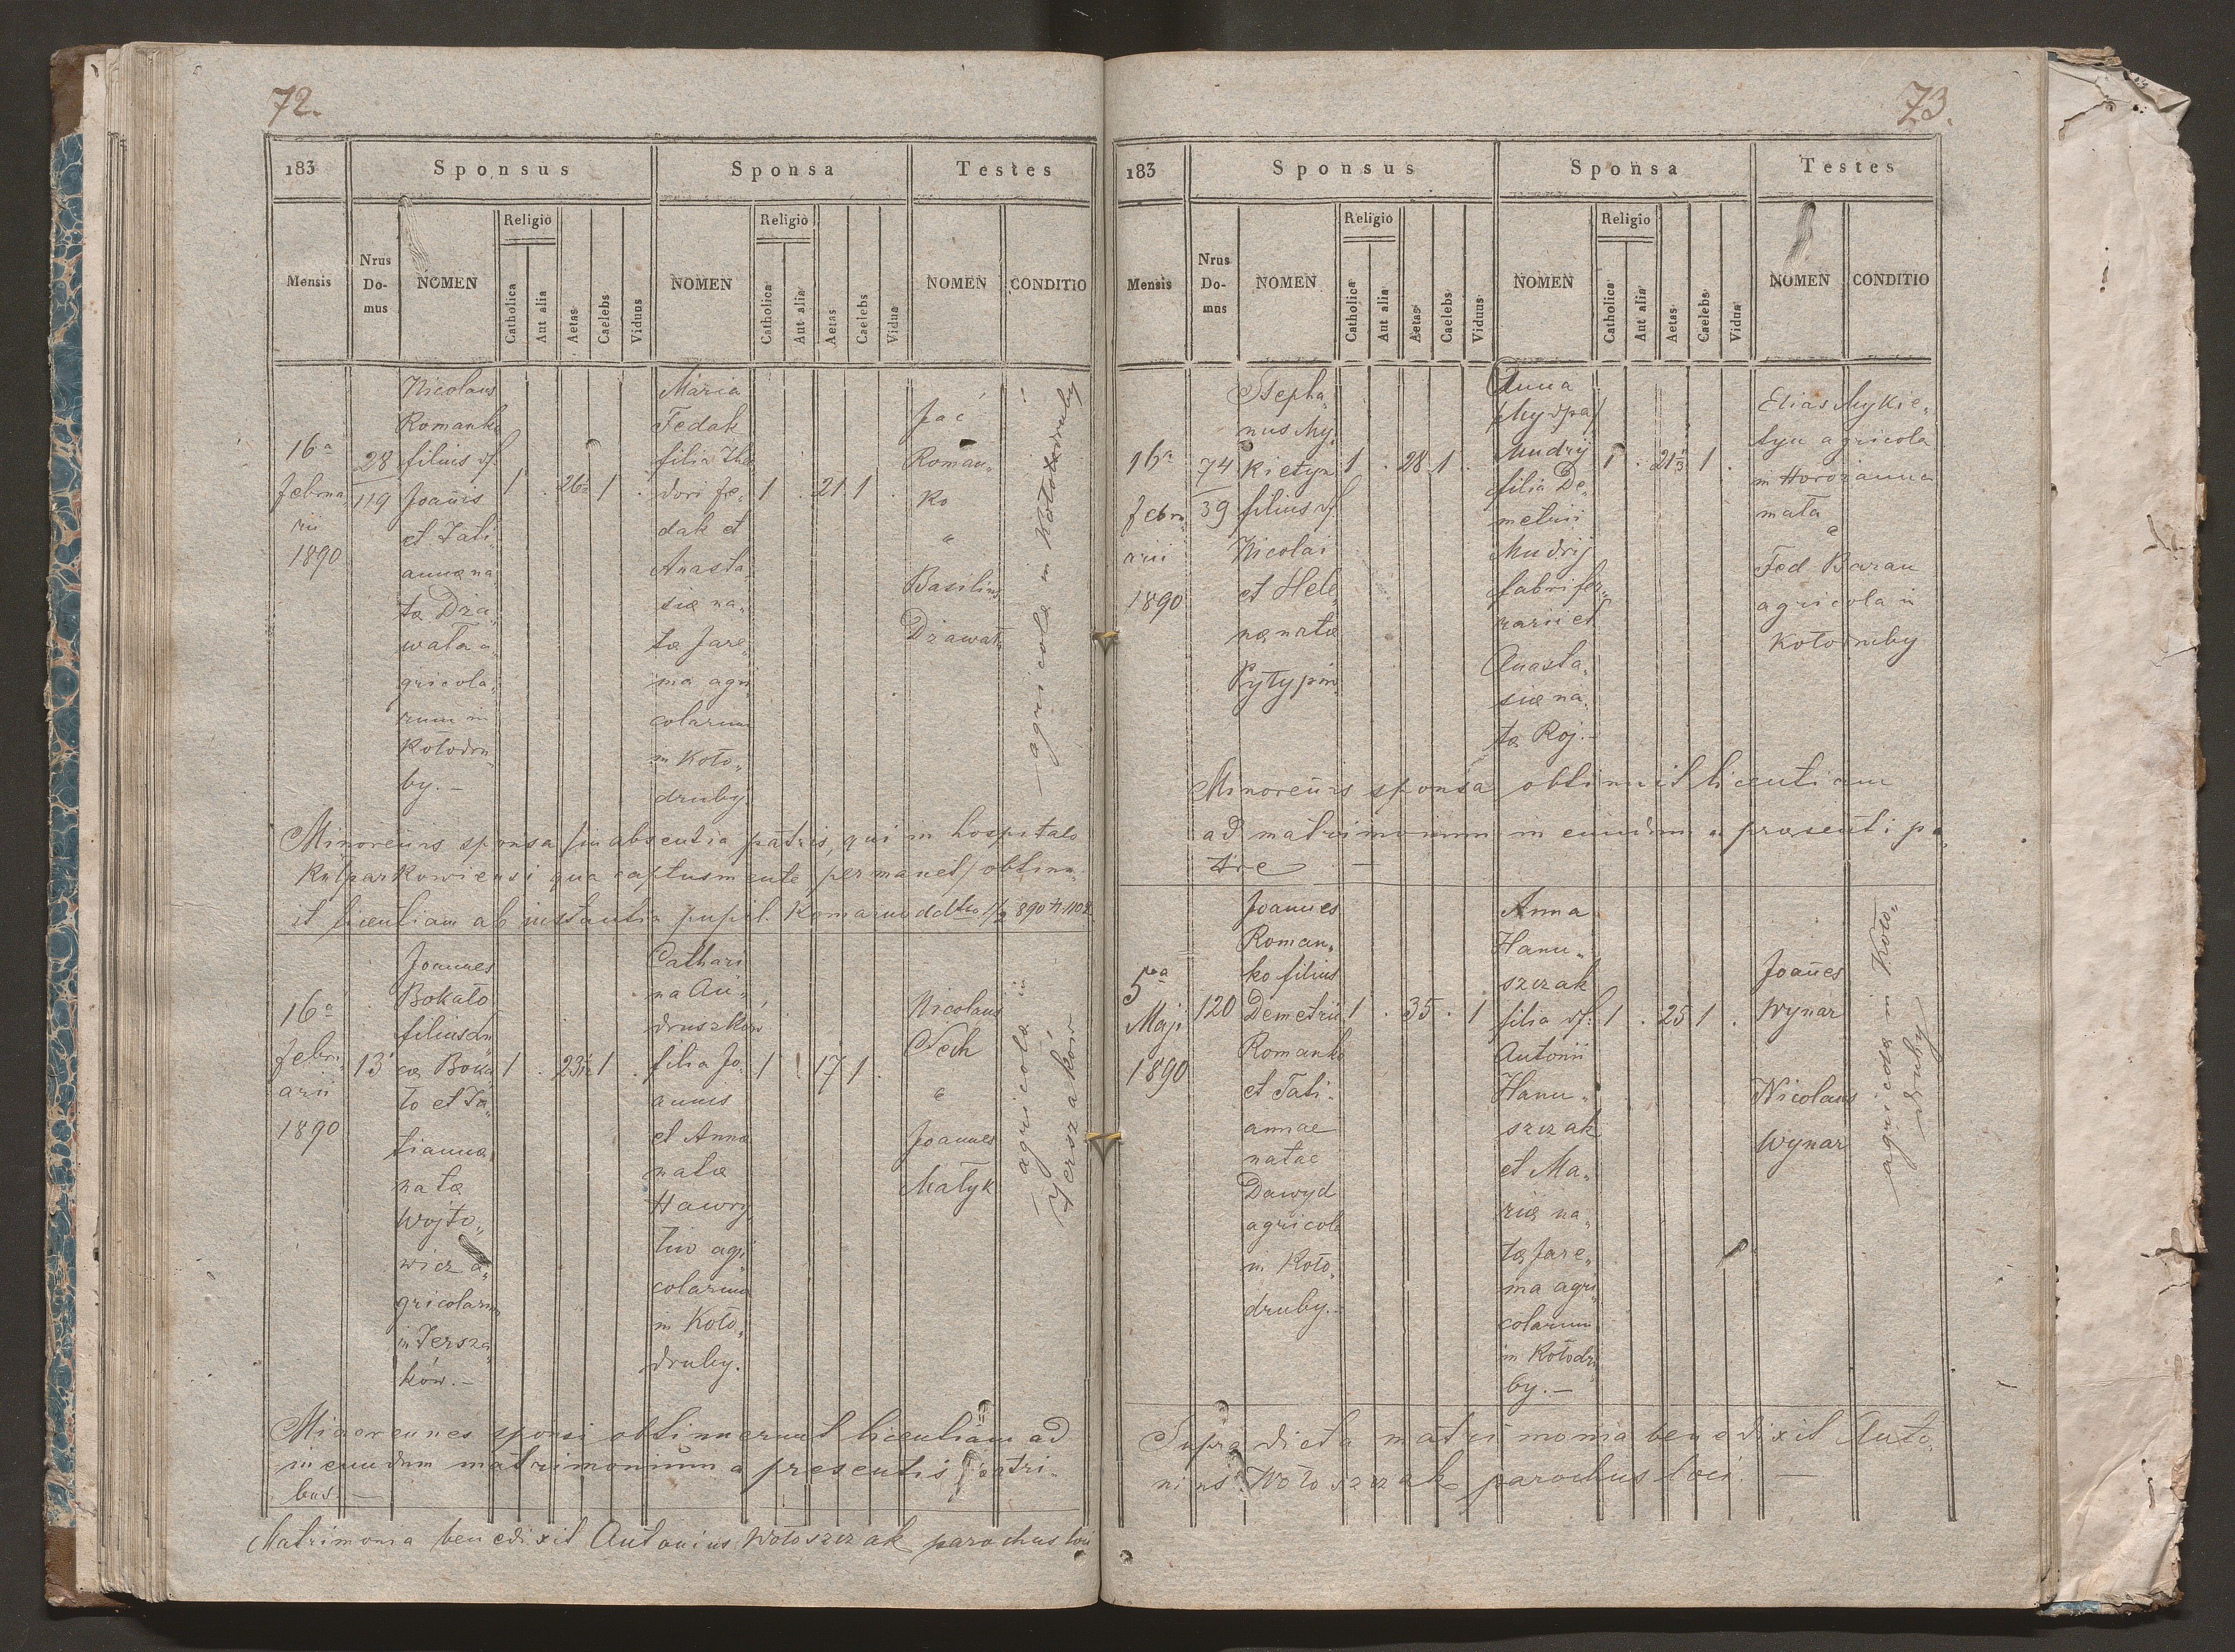 72.
183
Sponsus
Sponsa
Testes
Mensis
Nrus
Do-
mus
NOMEN
Religio
Catholica
Aut alia
Aetas
Caelebs
Viduus
NOMEN
Religio
Catholica
Aut alia
Aetas
Caelebs
Vidua
NOMEN
CONDITIO
16a
Februa„
rii
1890
28
119
Nicolaus
Romanko
filius
Joañis
et Tati„
annæ na
tæ Dża„
wała a„
gricola„
rum in
Kołodru„
by.–
1 . 26 1 .
Maria
Fedak
filia Theo
dori Fe„
dak et
Anasta„
siæ na„
tæ Jare„
ma agri
colarum
in Koło„
druby.
1 . 21 1 .
Jać
Roman„
ko
"
Basilius
Dżawała
agricolæ in Kołodruby
Minorenis sponsa /in absentia patris, qui in hospitalo
Kulparkowiensi qua captus mente permanet/ obtinu„
it licentiam ab instantia pupil. Komarno ddto 1/2 890
16a
Febru„
arii
1890
13
Joannes
Bokało
filius Lu„
cæ Boka
ło et Ta„
tiannæ
natæ
Wojto„
wicz a„
gricolarum
in Tersza„
ków.–
1 . 23 1 .
Cathari
na An„
druszków
filia Jo„
annis
et Anna
natæ
Hawry
łiw agri
colarum
in Koło„
druby.
1 . 17 1 .
Nicolaus
Tech
"
Joannes
Małyk
agricolæ in
Terszaków
Minorennes sponsi obtinuerunt licentiam ad
ineundum matrimonium a presentis patri„
bus.–
Matrimonia benedixit Antonius Wołoszczak parochus loci
73.
183
Sponsus
Sponsa
Testes
Mensis
Nrus
Do-
mus
NOMEN
Religio
Catholica
Aut alia
Aetas
Caelebs
Viduus
NOMEN
Religio
Catholica
Aut alia
Aetas
Caelebs
Vidua
NOMEN
CONDITIO
16a
Febru„
arii
1890
74
39
Stepha„
nus My„
kietyn
filius
Nicolai
et Hele„
næ natæ
Pyłypiw
1 . 28 1 .
Anna
Mudrij
filia De„
metrii
Mudrij
fabri fer„
rarii et
Anasta„
siæ na„
tæ Roj.–
1 . 21 1 .
Elias Mykie„
tyn agricola
in Horożanna
mała
"
Fed Baran
agricola in
Kołodruby
Minorenis sponsa obtinuit licentiam
ad matrimonium ineundum a præsenti pa„
tre –
5ta
Maji
1890
120
Joannes
Roman„
ko filius
Demetrii
Romanko
et Tati„
annae
natae
Dawyd
agricola
in Koło„
druby.–
1 . 35 . 1
Anna
Hanu„
szczak
filia
Antonii
Hanu„
szczak
et Ma„
riæ na„
tæ Jare„
ma agri
colarum
in Kołodru
by.–
1 . 25 1 .
Joañes
Wynar
Nicolaus
Wynar
agricolæ in Koło„
druby
Supra dicta matrimonia benedixit Anto„
nius Wołoszczak parochus loci. –